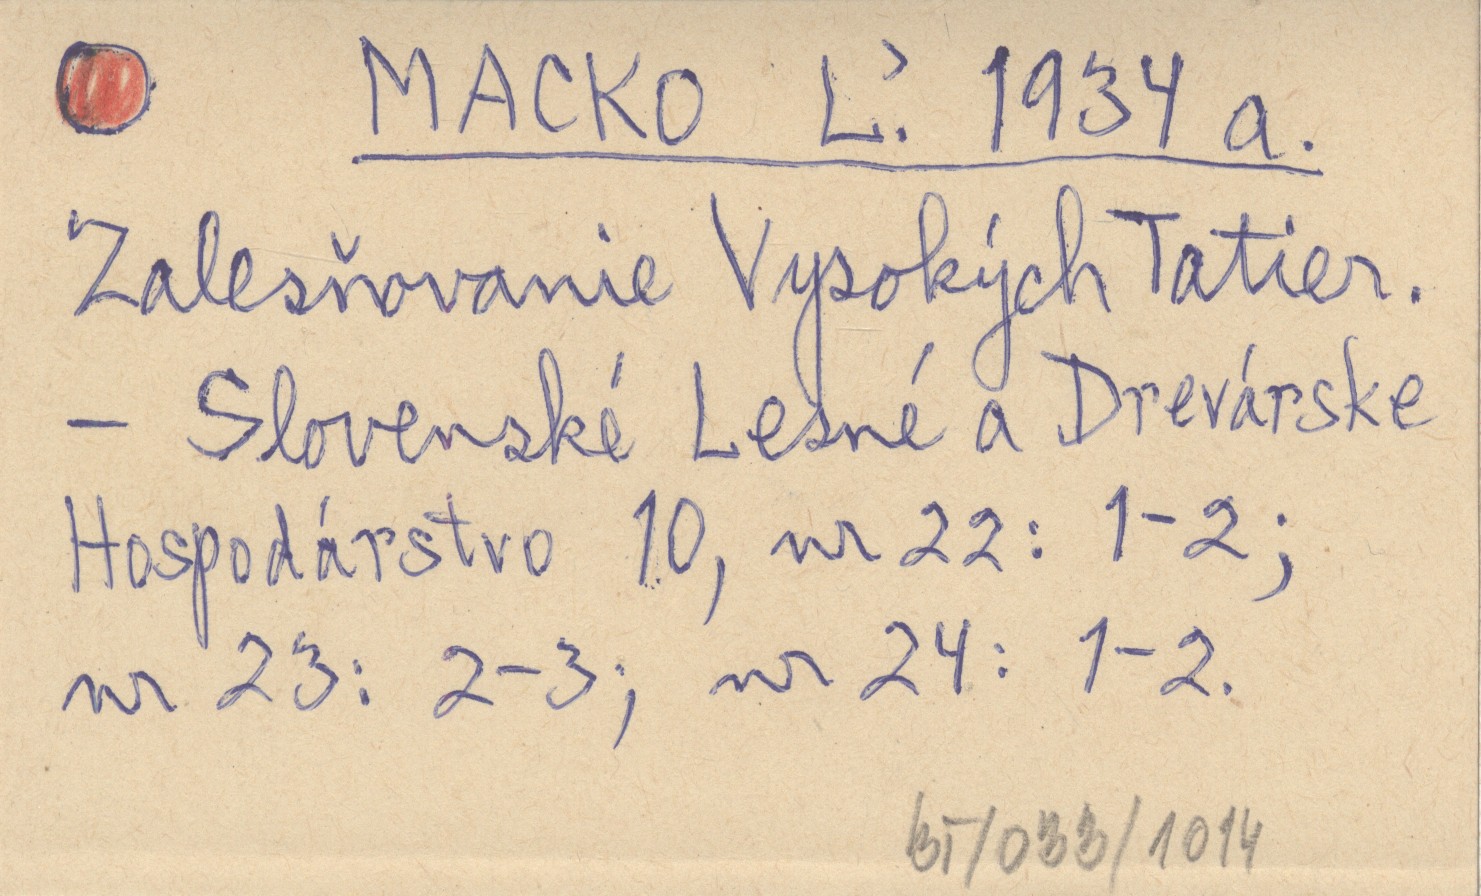 MACKO Ľ. 1934 a.
Zalesňovanie Vysokých Tatier.
– Slovenské Lesné a Drevárske
Hospodárstvo 10, nr 22: 1–2;
nr 23: 2–3; nr 24: 1–2.
BT/033/1014